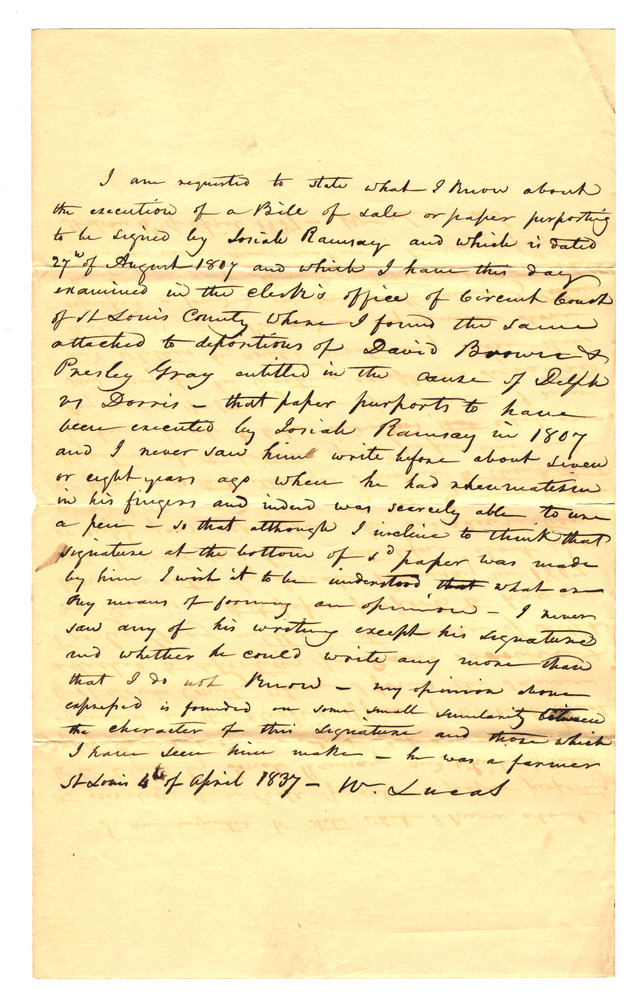 I am requested to state what I know about
the execution of a Bill of sale or paper purporting
to be signed by Josiah Ramsay and which is dated
27th of August 1807 and which I have this day
examined in the Clerk's office of Circuit Court
of St Louis County where I found the same
attached to depositions of David Brown &
Presley Gray entitled in the cause of Delph
vs Dorris – that paper purports to have
been executed by Josiah Ramsay in 1807
and I never saw him write before about seven
or eight years ago when he had rheumatism
in his fingers and indeed was scarcely able to use
a pen – so that although I incline to think that
signature at the bottom of sd paper was made
by him I wish it to be understood that what are
my means of forming an opinion – I never
saw any of his writing except his signature
and whether he could write any more than
that I do not know – my opinion above
expressed is founded on some small similarity between
the character of this signature and those which
I have seen him make – he was a farmer
St Louis 4th of April 1837 – W. Lucas